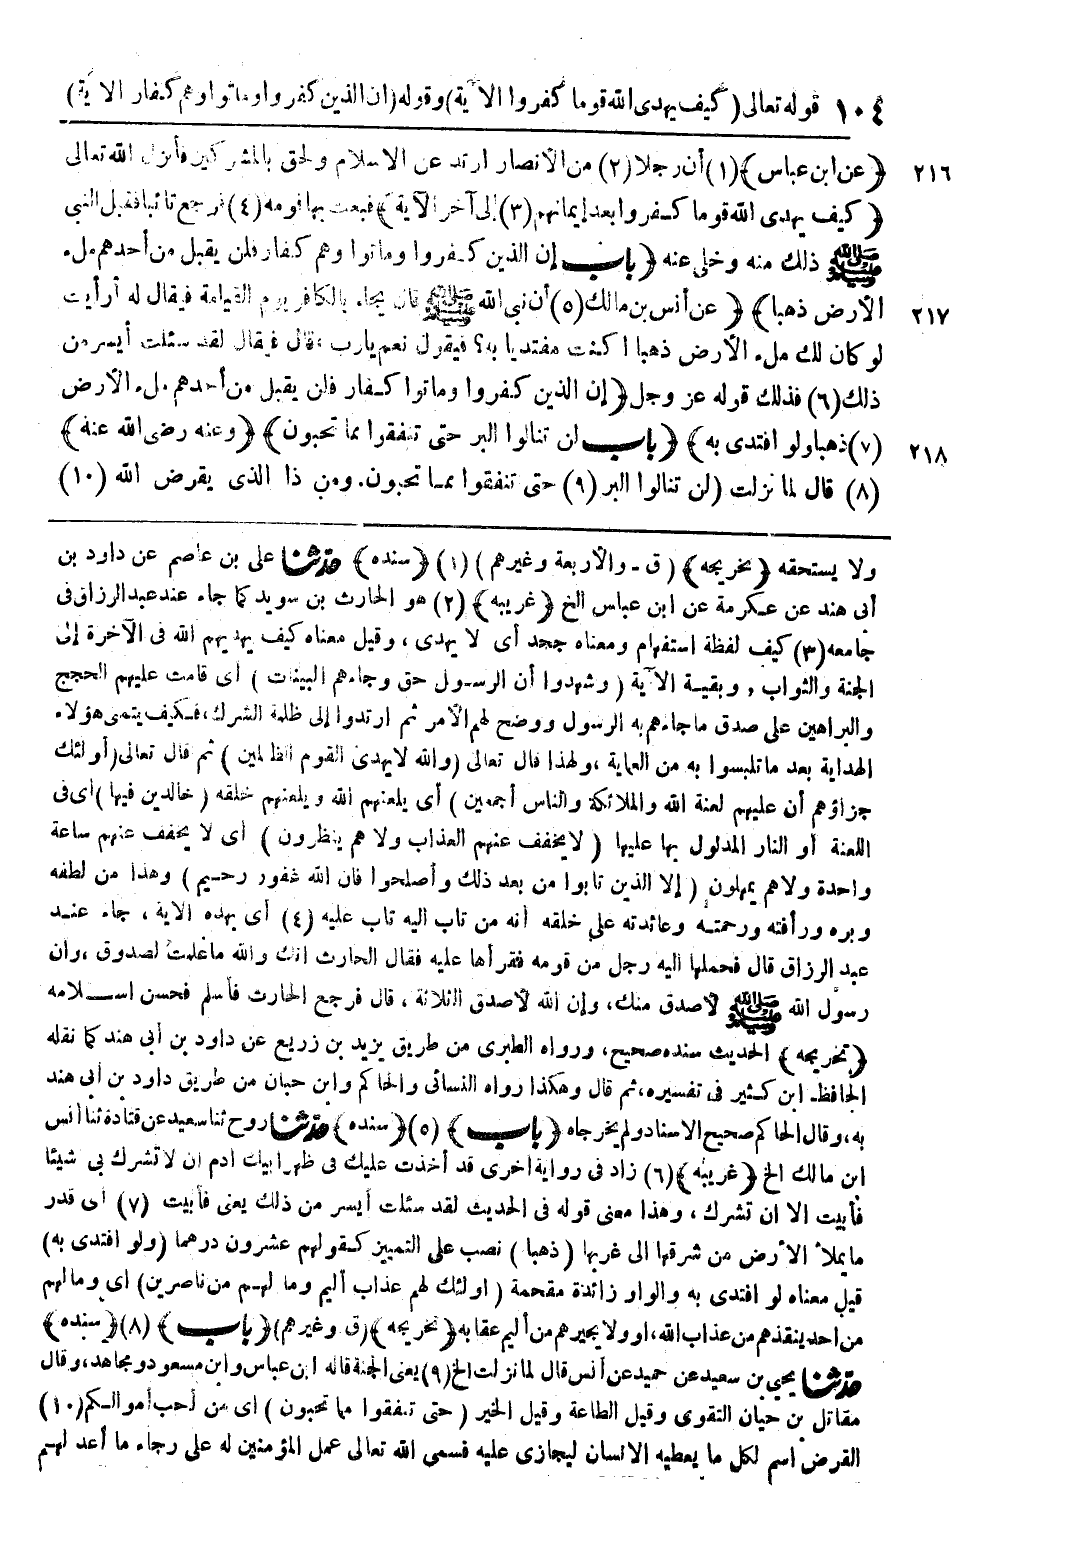 ١٠٤ قوله تعالى (كيف يهدى الله قوما كفروا الآية) وقوله (ان الذين كفروا وماتوا وهم كفار الآية)
٢١٦ ﴿عن ابن عباس﴾ (١) أن رجلا (٢) من الأنصار ارتد عن الاسلام ولحق بالمشركين فأنزل الله تعالى
﴿كيف يهدى الله قوما كفروا بعد إيمانهم (٣) إلى آخر الآية﴾ فبعث بها قومه (٤) فرجع تائبا فقبل النبي
ﷺ ذلك منه وخلى عنه ﴿باب إن الذين كفروا وماتوا وهم كفار فلن يقبل من أحدهم ملء
٢١٧ الأرض ذهبا﴾ ﴿عن أنس بن مالك (٥) أن نبي الله ﷺ قال يجاء بالكافر يوم القيامة فيقال له أرأيت
لو كان لك ملء الأرض ذهبا اكنت مفتديا به؟ فيقول نعم يارب، قال فيقال لقد سئلت أيسر من
ذلك (٦) فذلك قوله عز وجل ﴿إن الذين كفروا وماتوا كفار فلن يقبل من أحدهم ملء الأرض
٢١٨ (٧) ذهبا ولو افتدى به﴾ ﴿باب لن تنالوا البر حتى تنفقوا مما تحبون﴾ ﴿وعنه رضى الله عنه﴾
(٨) قال لما نزلت (لن تنالوا البر (٩) حتى تنفقوا مما تحبون. ومن ذا الذى يقرض الله (١٠)
ولا يستحقه ﴿تخريجه﴾ (ق - والأربعة وغيرهم) (١) ﴿سنده﴾ حدثنا على بن عاصم عن داود بن
أبى هند عن عكرمة عن ابن عباس الخ ﴿غريبه﴾ (٢) هو الحارث بن سويد كما جاء عند عبد الرزاق فى
جامعه (٣) كيف لفظة استفهام ومعناه جحد أى لا يهدى، وقيل معناه كيف يهديهم الله فى الآخرة إلى
الجنة والثواب، وبقية الآية (وشهدوا أن الرسول حق وجاءهم البينات) أى قامت عليهم الحجج
والبراهين على صدق ما جاءهم به الرسول ووضح لهم الأمر ثم ارتدوا إلى ظلمة الشرك، فكيف يتمى هؤلاء
الهداية بعد ما تلبسوا به من العماية، ولهذا قال تعالى (والله لا يهدى القوم الظالمين) ثم قال تعالى (أولئك
جزاؤهم أن عليهم لعنة الله والملائكة والناس أجمعين) أى يلعنهم الله ويلعنهم خلقه (خالدين فيها) أى فى
اللعنة أو النار المدلول بها عليها (لا يخفف عنهم العذاب ولا هم ينظرون) أى لا يخفف عنهم ساعة
واحدة ولا هم يمهلون (إلا الذين تابوا من بعد ذلك وأصلحوا فان الله غفور رحيم) وهذا من لطفه
وبره ورأفته ورحمته وعائدته على خلقه أنه من تاب اليه تاب عليه (٤) أى بهذه الآية، جاء عند
عبد الرزاق قال فحملها اليه رجل من قومه فقرأها عليه فقال الحارث انك والله ما علمت لصدوق، وان
رسول الله ﷺ لأصدق منك، وإن الله لأصدق الثلاثة، قال فرجع الحارث فأسلم فحسن اسلامه
﴿تخريجه﴾ الحديث سنده صحيح، ورواه الطبرى من طريق يزيد بن زريع عن داود بن أبى هند كما نقله
الحافظ ابن كثير فى تفسيره، ثم قال وهكذا رواه النسائى والحاكم وابن حبان من طريق داود بن أبى هند
به، وقال الحاكم صحيح الاسناد ولم يخرجاه ﴿باب﴾ (٥) ﴿سنده﴾ حدثنا روح ثنا سعيد عن قتادة ثنا أنس
ابن مالك الخ ﴿غريبه﴾ (٦) زاد فى رواية أخرى قد أخذت عليك فى ظهر أبيك آدم ان لا تشرك بى شيئا
فأبيت الا ان تشرك، وهذا معنى قوله فى الحديث لقد سئلت أيسر من ذلك يعنى فأبيت (٧) أى قدر
ما يملأ الأرض من شرقها الى غربها (ذهبا) نصب على التمييز كقولهم عشرون درهما (ولو افتدى به)
قيل معناه لو افتدى به والواو زائدة مقحمة (اولئك لهم عذاب أليم وما لهم من ناصرين) اى وما لهم
من احد ينقذهم من عذاب الله، او ولا يجيرهم من أليم عقابه ﴿تخريجه﴾ (ق وغيرهم) ﴿باب﴾ (٨) ﴿سنده﴾
حدثنا يحيى بن سعيد عن حميد عن أنس قال لما نزلت الخ (٩) يعنى الجنة قاله ابن عباس وابن مسعود ومجاهد، وقال
مقاتل بن حيان التقوى وقيل الطاعة وقيل الخير (حتى تنفقوا مما تحبون) اى من أحب أموالكم (١٠)
القرض اسم لكل ما يعطيه الانسان ليجازى عليه فسمى الله تعالى عمل المؤمنين له على رجاء ما أعد لهم